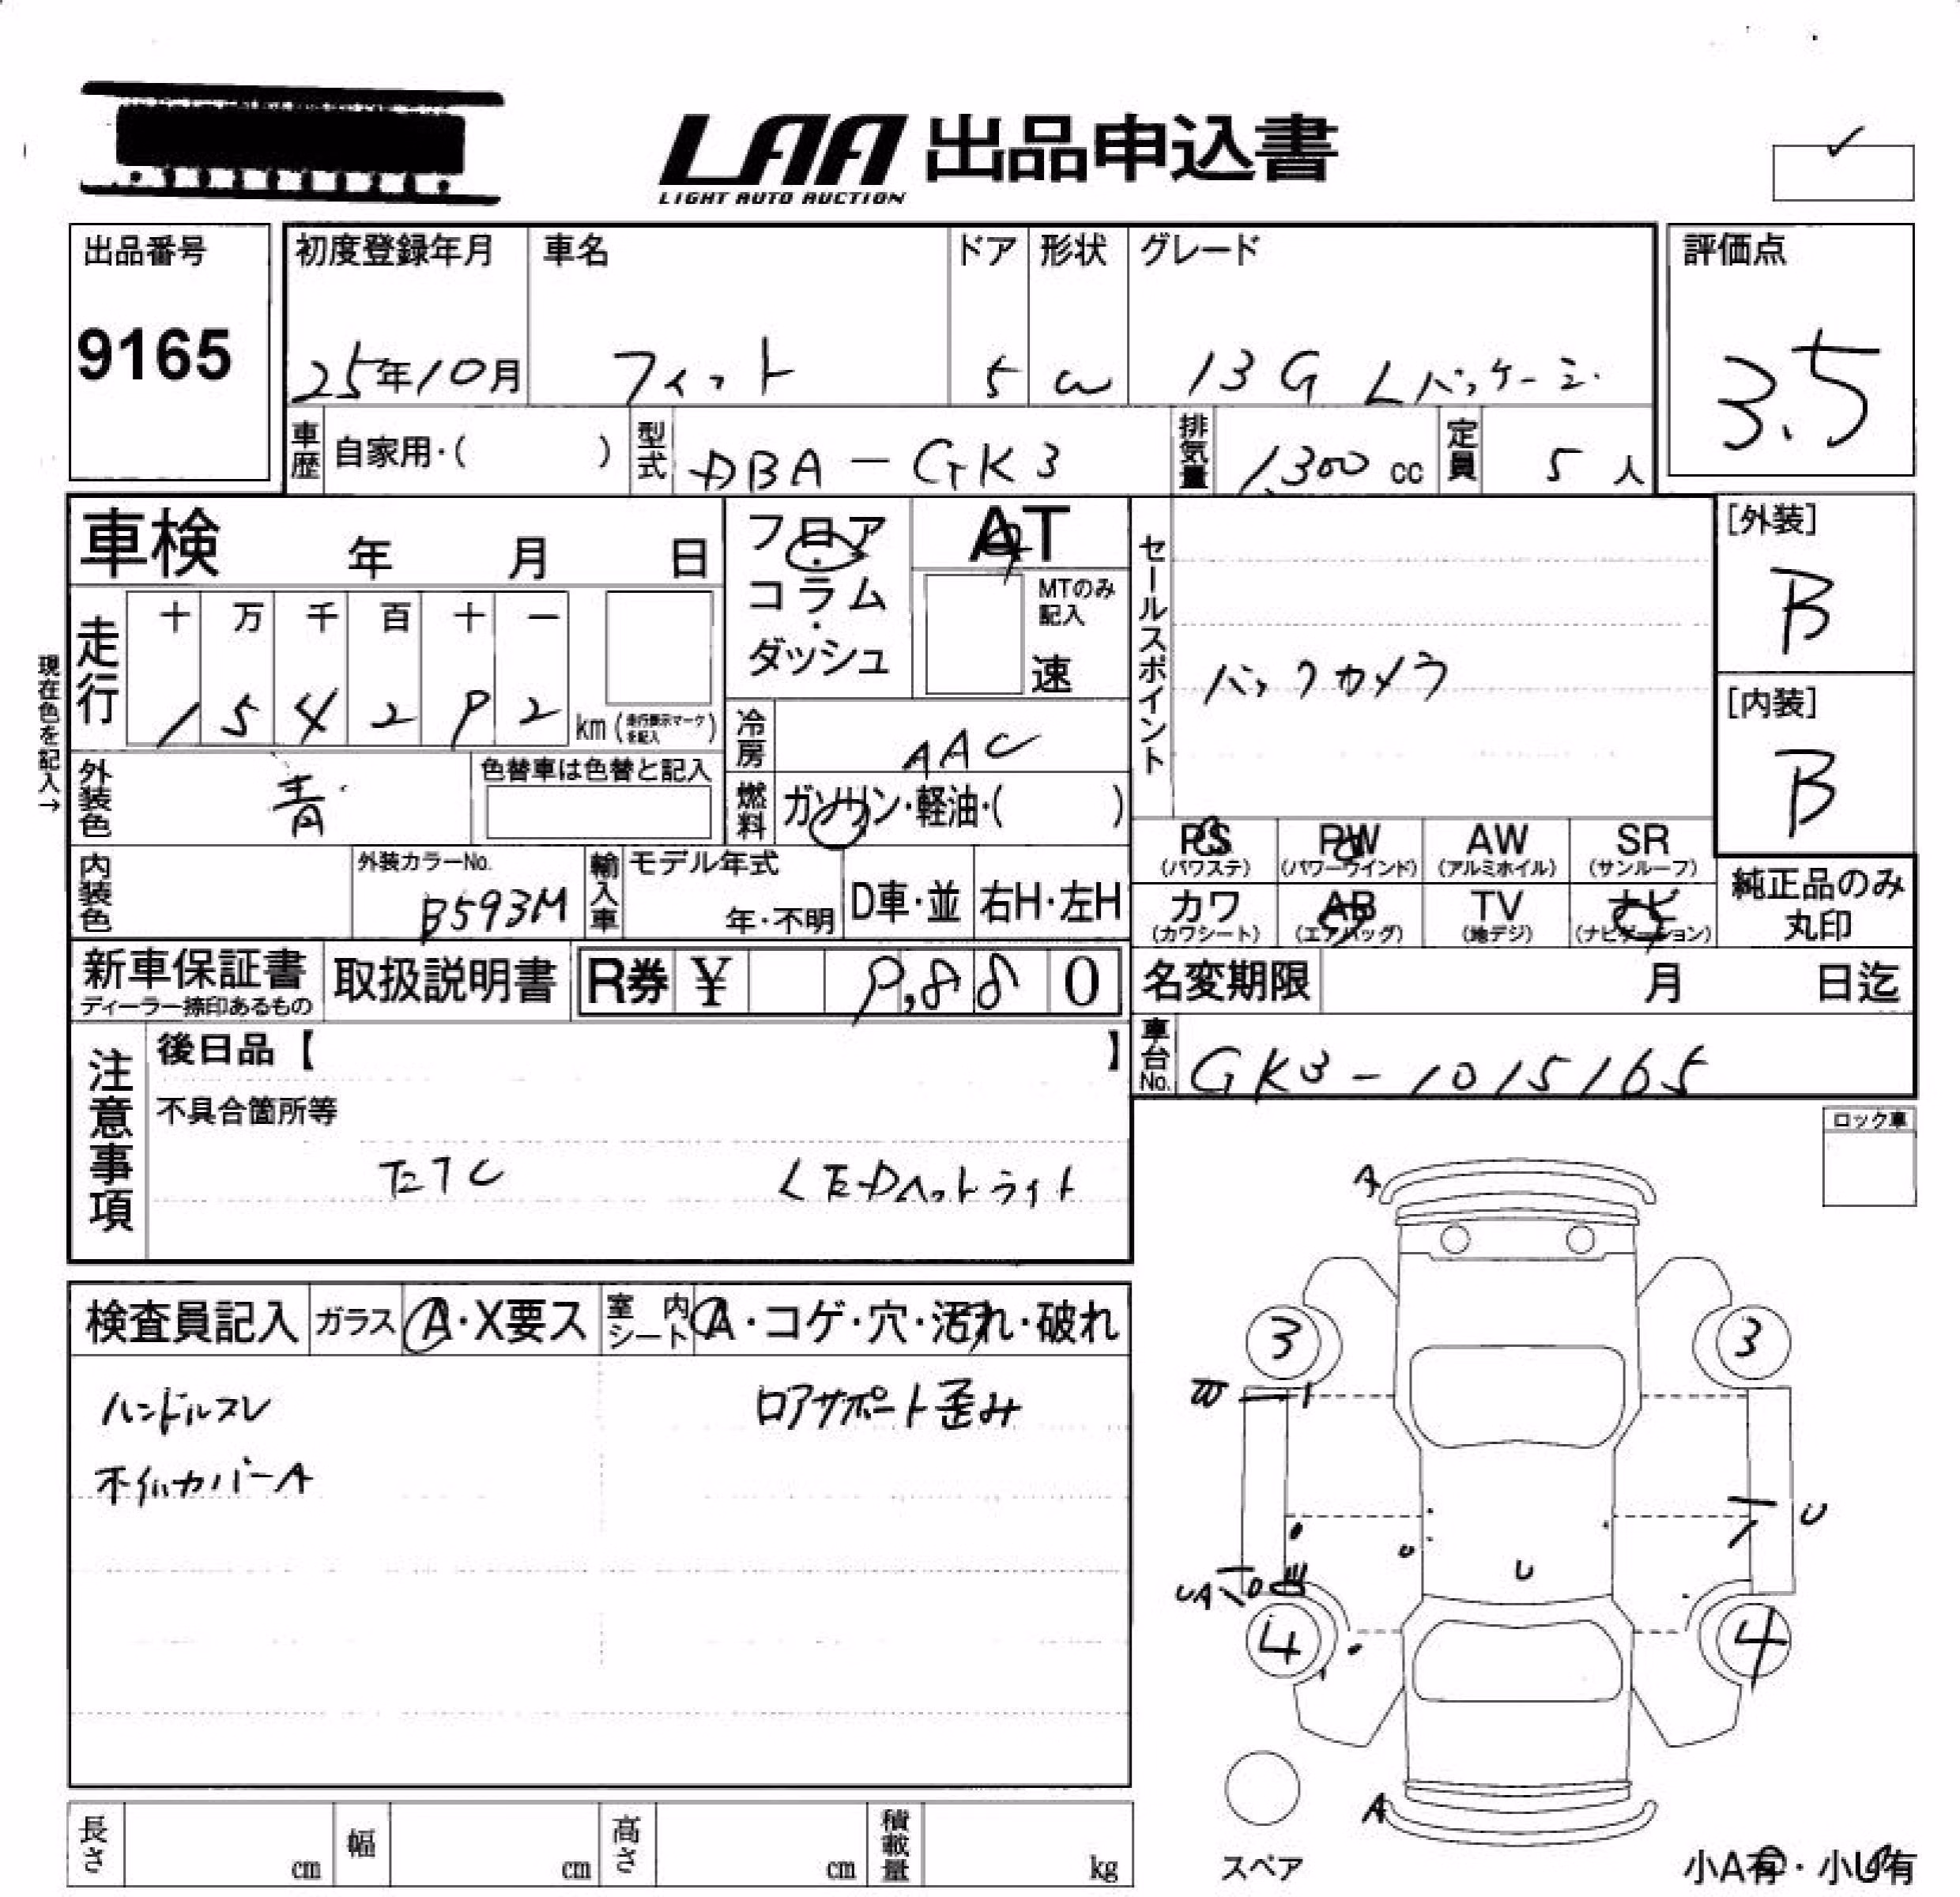 LAA 出品申込書
LIGHT AUTO AUCTION
出品番号
9165
初度登録年月
25年10月
車名
フィット
ドア
5
形状
W
グレード
13G Lパッケージ
評価点
3.5
車歴 自家用・( )
型式 DBA-GK3
排気量 1,300 cc
定員 5人
車検 年 月 日
フロア・コラム・ダッシュ
AT
MTのみ記入
速
セールスポイント
バックカメラ
[外装]
B
[内装]
B
現在色を記入→
走行
十 万 千 百 十 一
1 5 4 2 9 2
km (走行表示マークを記入)
冷房 AAC
外装色 青
色替車は色替と記入
燃料 ガソリン・軽油・( )
PS (パワステ)
PW (パワーウインド)
AW (アルミホイル)
SR (サンルーフ)
カワ (カワシート)
AB (エアバッグ)
TV (地デジ)
ナビ (ナビゲーション)
純正品のみ丸印
内装色
外装カラーNo.
B593M
輸入車
モデル年式
年・不明
D車・並
右H・左H
新車保証書
ディーラー捺印あるもの
取扱説明書
R券 ¥ 9,880
名変期限 月 日迄
注意事項
後日品【 】
車台No. GK3-1015165
不具合箇所等
ETC LEDヘットライト
ロック車
検査員記入
ガラス A・X要ス
室内シート A・コゲ・穴・汚れ・破れ
ハンドルスレ ロアサポート歪み
ホイルカバーA
A
3 3
U
UA
U
4 4
A
スペア
長さ cm
幅 cm
高さ cm
積載量 kg
小A有・小U有